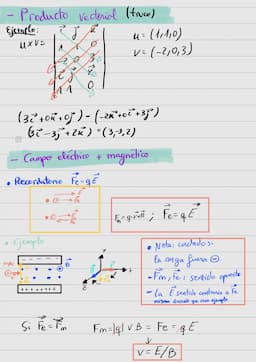 - Producto vectorial (truco)
Ejemplo:
u x v =
i j k
1 1 0
-2 0 3
i j k
1 1 0
u = (1,1,0)
v = (-2,0,3)
(3i + 0k + 0j) - (-2k + 0i + 3j)
(3i - 3j + 2k) = (3,-3,2)
- Campo eléctrico + magnético
• Recordatorio Fe = q E
; Fe = q E
• Ejemplo
• Nota: cuidado si
la carga fuera ⊖.
- Fm, Fe: sentido opuesto
- La E sentido contrario a Fe
Si Fe = Fm
Fm = |q| v B = Fe = q E
v = E/B